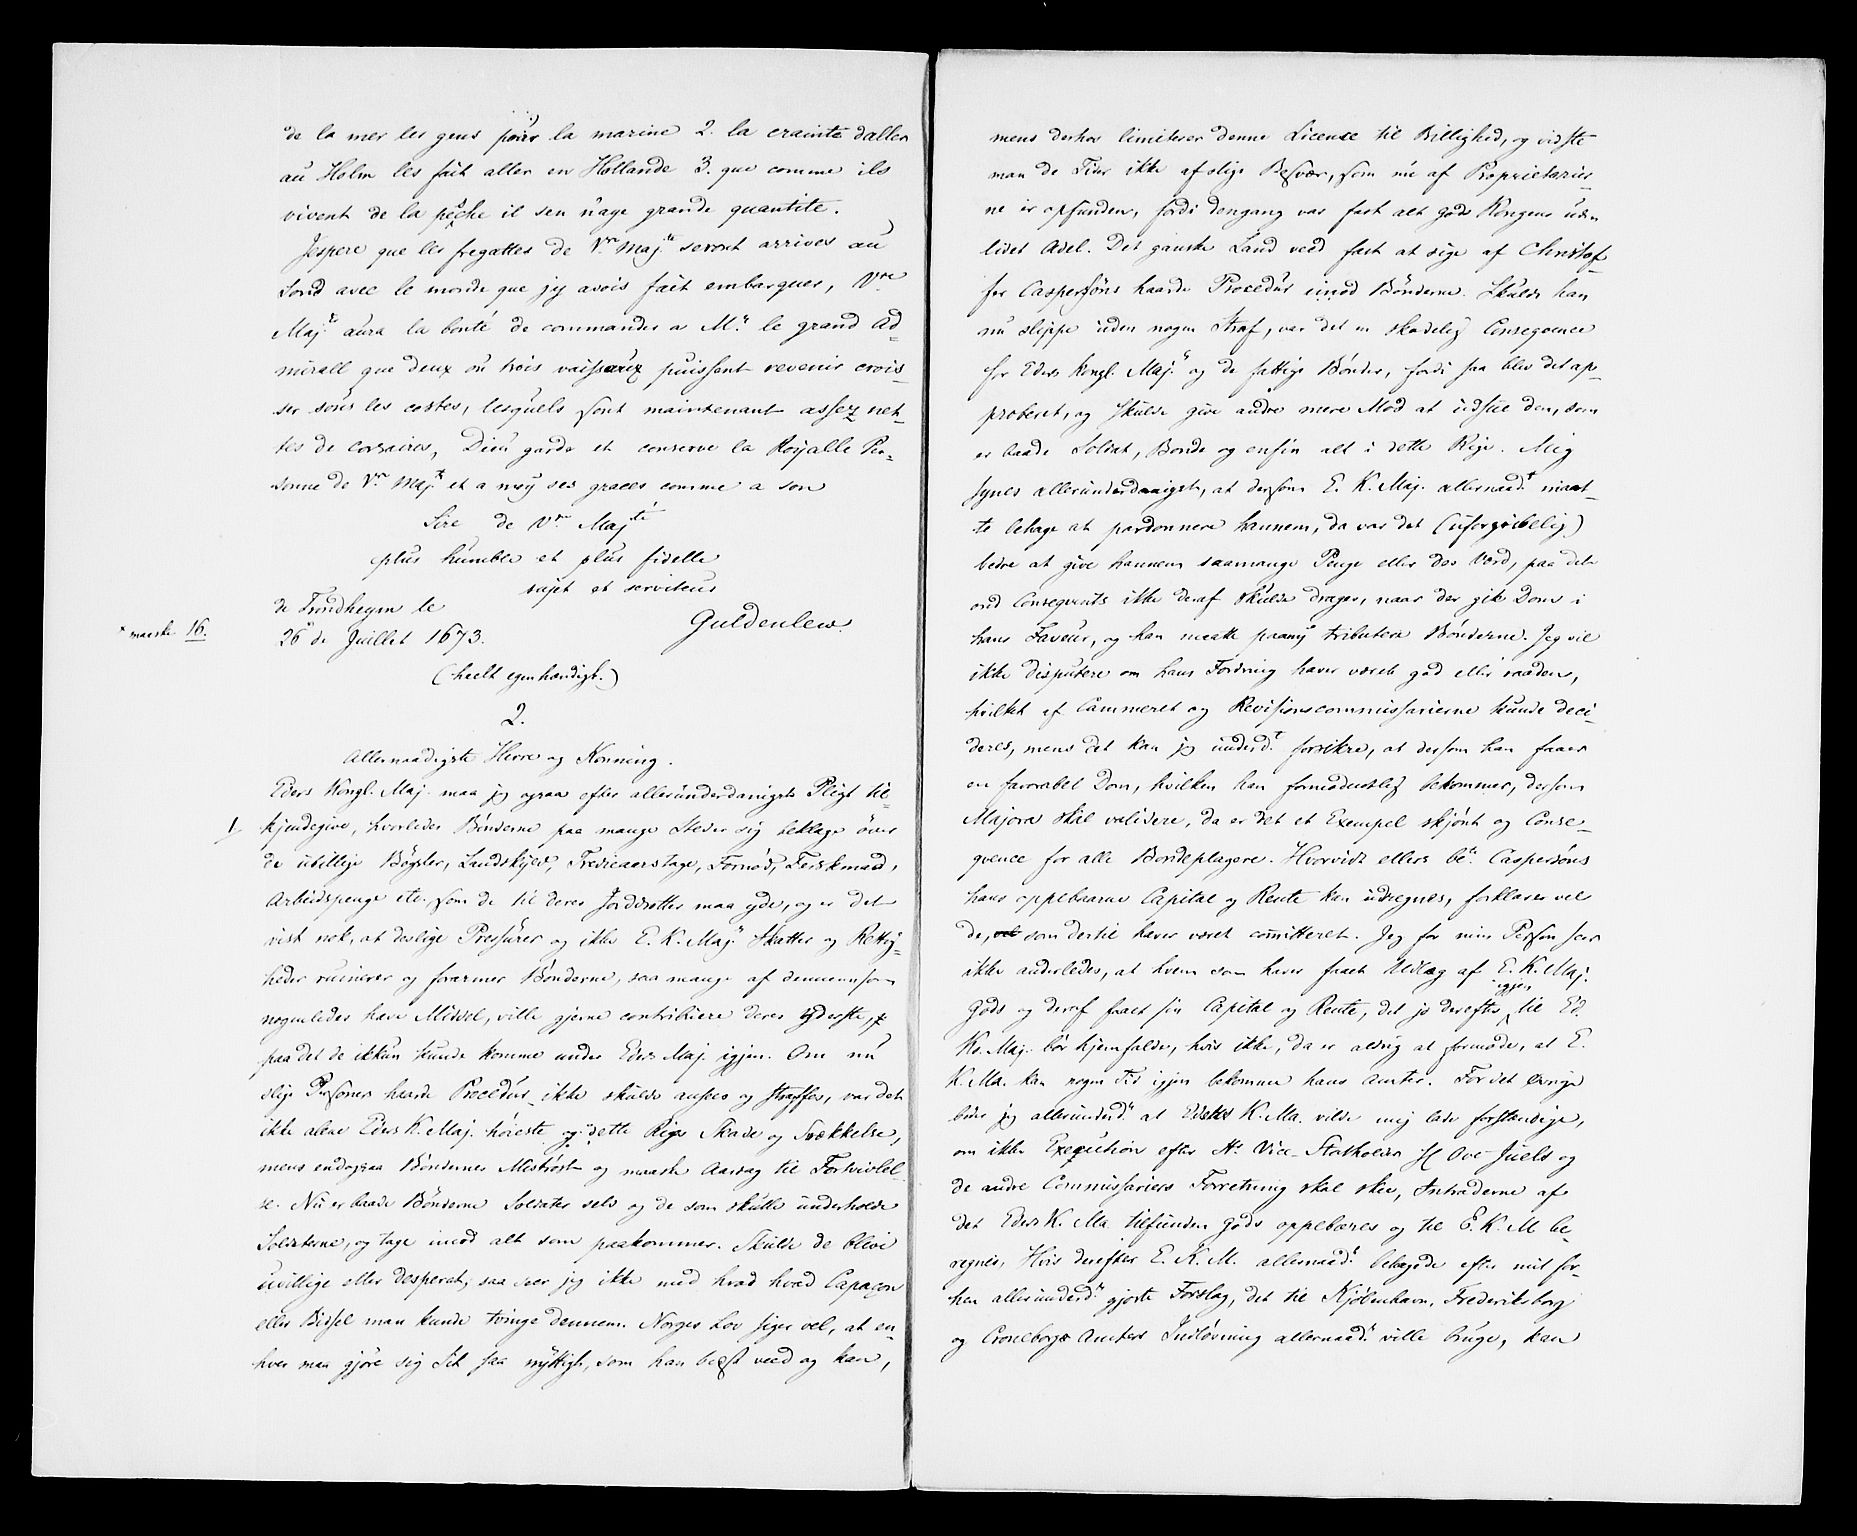 de la mer les gens pour la marine 2. la crainte daller
au Holm les fait aller en Hollande 3. que comme ils
vivent de la pêche il sen nage grande quantite.
Jespere que les fregattes de Vre Majte seront arrives au
Sond avec le monde que jy avois fait embarquer, Vre
Majte aura la bonté de commander a Mr le grand Ad-
mirall que deux ou trois vaisseaux puissent revenir crois-
ser sous les costes, lesquels sont maintenant assez net-
tes de corsaires, Dieu garde et conserve la Royalle Per-
sonne de Vre Majte et a moy ses graces comme a son
Sire de Vre Majté
plus humble et plus fidelle
sujet et serviteur
de Trondheym le
* maaske 16.
26* de Juillet 1673.
Guldenlew.
(heelt egenhændigt.)
2.
Allernaadigste Herre og Konning.
Eders Kongl. Maj. maa jeg ogsaa efter allerunderdanigste Pligt til-
kjendegive, hvorledes Bønderne paa mange Steder sig beklage over
de ubillige Bøgsler, Landskyld, Tredieaarstage, Fornød, Leeskmand,
Arbeidspenge etc. som de til deres Jorddrotter maa yde, og er det
vist nok, at deslige Pressurer og ikke E. K. Majts Skatter og Rettig-
heder ruinerer og forarmer Bønderne, saa mange af dennem som
nogenledes have Middel, ville gjerne contribuere deres yderste,
paa det de ikkun kunde komme under Eders Maj. igjen. Om nu
slige Personers haarde Procedur ikke skulde ansees og straffes, var det
ikke alene Eders K. Maj. høieste og dette Riges Skade og Svækkelse,
mens endogsaa Bøndernes Mistrøst og maaske Aarsag til Fortvivlel-
se. Nu er baade Bønderne Soldater selv og de som skulle underholde
Soldaterne, og tage imod alt som paakommer. Skulde de blive
uvillige eller desperat, saa seer jeg ikke med hvad hvad Capaçon
eller Bidsel man kunde tvinge dennem. Norges Lov siger vel, at en-
hver maa gjøre sig Sit saa nyttigt, som han bedst veed og kan,
mens derhos limiterer denne License til Billighed, og vidste
man de Tider ikke af slige Besvær, som nu af Proprietarier-
ne er opfunden, fordi dengang var fast alt Gods Kongens uden
lidet Adel. Det ganske Land veed fast at sige af Christof-
fer Caspersøns haarde Procedur imod Bønderne. Skulde han
nu slippe uden nogen Straf, var det en skadelig Consequence
for Eders Kongl. Majt og de fattige Bønder, fordi saa blev det ap-
proberet, og skulde give andre mere Mod at udsue den, som
er baade Soldat, Bonde og ensin alt i dette Rige. Mig
synes allerunderdanigst, at dersom E. K. Maj. allernaadt maat-
te behage at pardonnere hannem, da var det (uforgribelig)
bedre at give hannem saamange Penge eller des Værd, paa det
ond Consequents ikke deraf skulde drages, naar der gik Dom i
hans Faveur, og han maatte paany tributere Bønderne. Jeg vil
ikke disputere om hans Fordring haver været god eller raaden,
hvilket af Cammeret og Revisionscommissarierne kunde deci-
deres, mens det kan jeg underdt forsikre, at dersom han faaer
en favorabel Dom, hvilken han formodentlig bekommer, dersom
Majora skal validere, da er det et Exempel skjønt og Conse-
qvence for alle Bondeplagere. Hvorvidt ellers bete Caspersøns
hans oppebaarne Capital og Rente kan udregnes, forklarer vel
de, som dertil haver været committeret. Jeg for min Person seer
ikke anderledes, at hvem som haver faaet Udlæg af E. K. Maj.
Gods og deraf faaet sin Capital og Rente, det jo derefter igjen til Ed.
Ko. Maj. bør hjemfalde, hvis ikke, da er aldrig at formode, at E.
K. Ma. kan nogen Tid igjen bekomme hans Amter. For det øvrige
beder jeg allerunderdt at Eders K. Ma. vilde mig lade forstændige,
om ikke Exeqution efter Hr Vice-Statholder Hr Ove Juels og
de andre Commissariers Forretning skal skee, Intraderne af
det Eders K. Ma. tilfunden Gods oppebæres og til E. K. M. be-
regnes, Hvis derefter E. K. M. allernaadt behagede efter mit for-
hen allerunderdt gjorte Forslag, det til Kjøbenhavn, Frederiksborg
og Croneborgs Amters Indløsning allernaadt ville bruge, kan